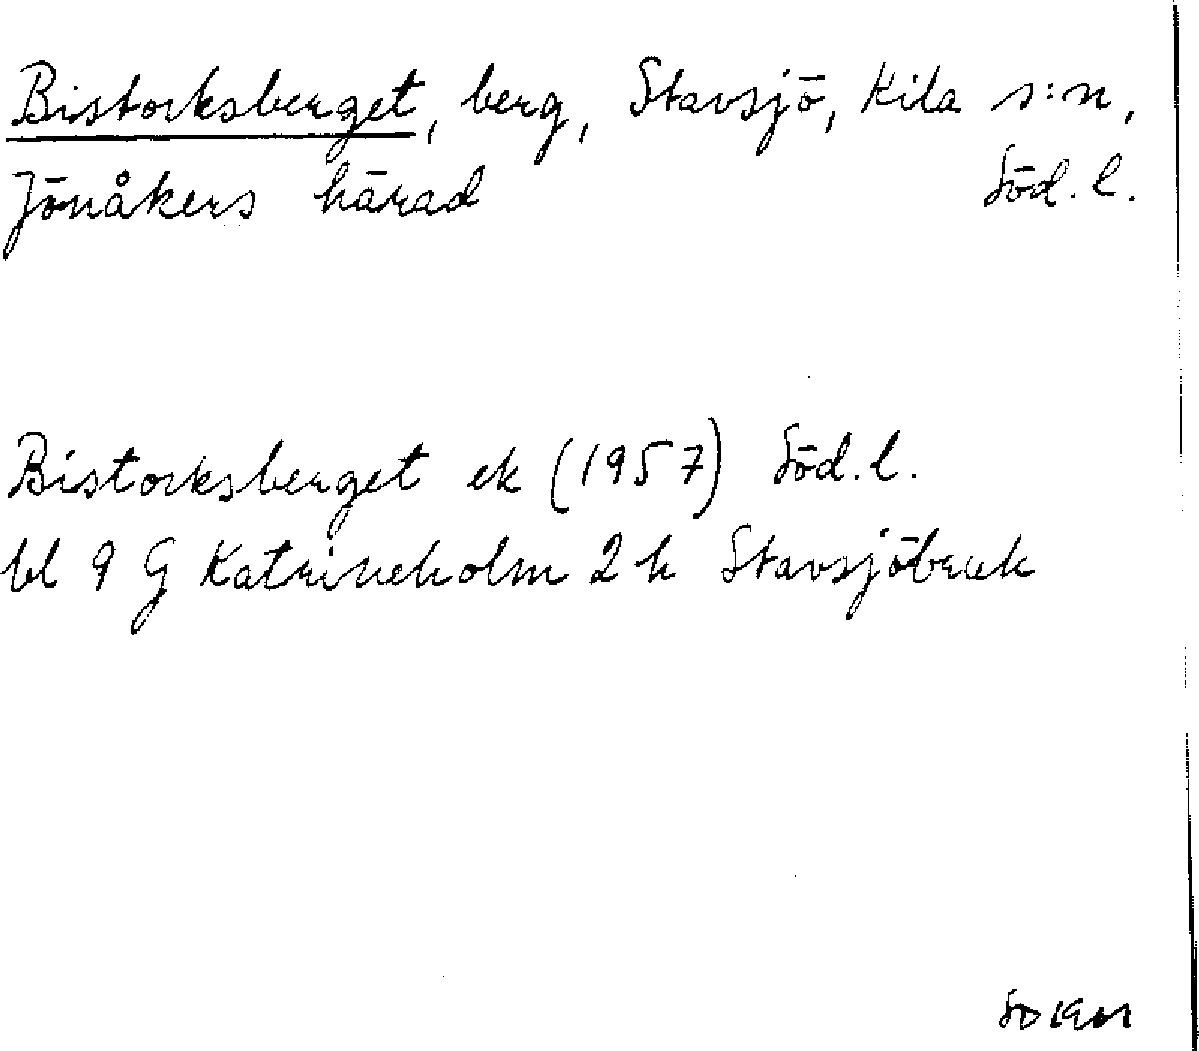 Bistocksberget, berg, Stavsjö, Kila s:n,
Jönåkers härad Söd. l.
Bistocksberget ek (1957) Söd. l.
bl 9 G Katrineholm 2 h Stavsjöbruk